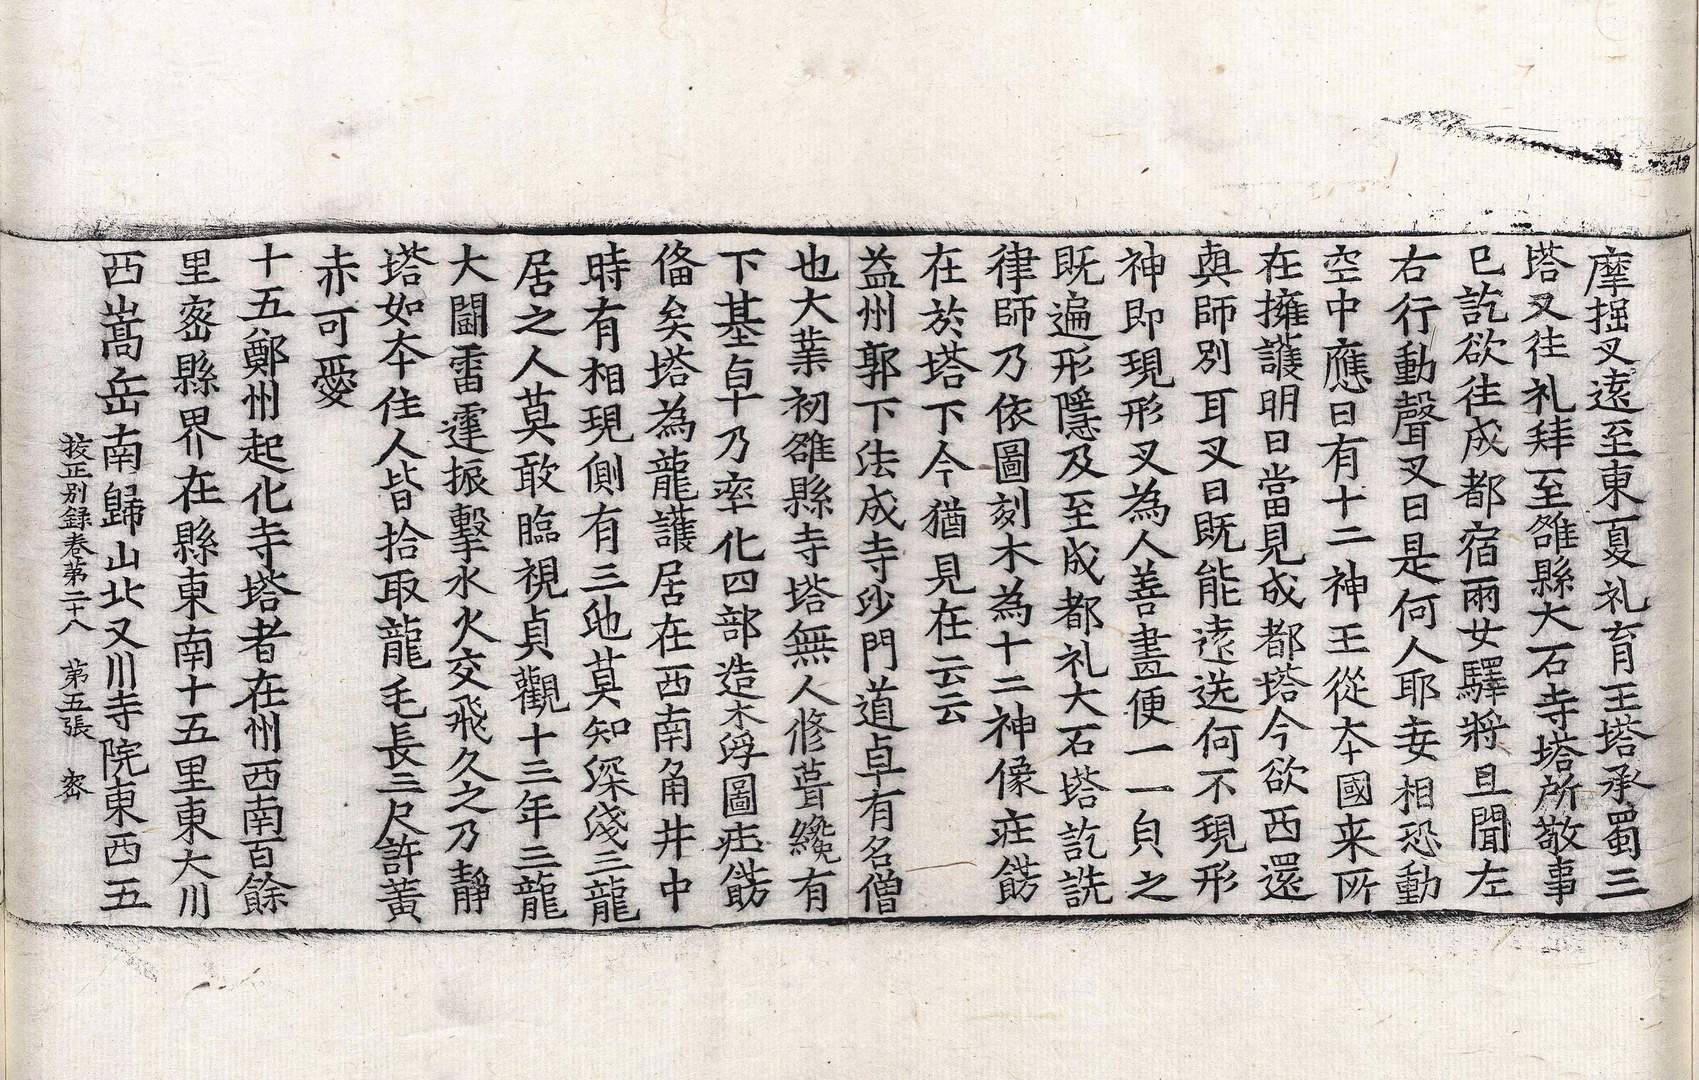 摩掘叉遠至東夏礼育王塔承蜀三
塔叉往礼拜至雒縣大石寺塔所敬事
已訖欲往成都宿雨女驛將旦聞左
右行動聲叉曰是何人耶妄相恐動
空中應曰有十二神王從夲國来所
在擁護明日當見成都塔今欲西還
與師別耳叉曰既能遠送何不現形
神即現形叉為人善畫便一一皃之
既遍形隱及至成都礼大石塔訖詵
律師乃依圖刻木為十二神像庄餝
在於塔下今猶見在云云
益州郭下法成寺沙門道卓有名僧
也大業初雒縣寺塔無人修葺纔有
下基卓乃率化四部造木浮圖庄餝
俻矣塔為龍護居在西南角井中
時有相現側有三池莫知深淺三龍
居之人莫敢臨視貞觀十三年三龍
大鬭雷霆振擊水火交飛久之乃静
塔如夲住人皆拾取龍毛長三尺許黃
赤可愛
十五鄭州起化寺塔者在州西南百餘
里密縣界在縣東南十五里東大川
西嵩岳南歸山北又川寺院東西五
挍正別録卷第二十八　第五張　密